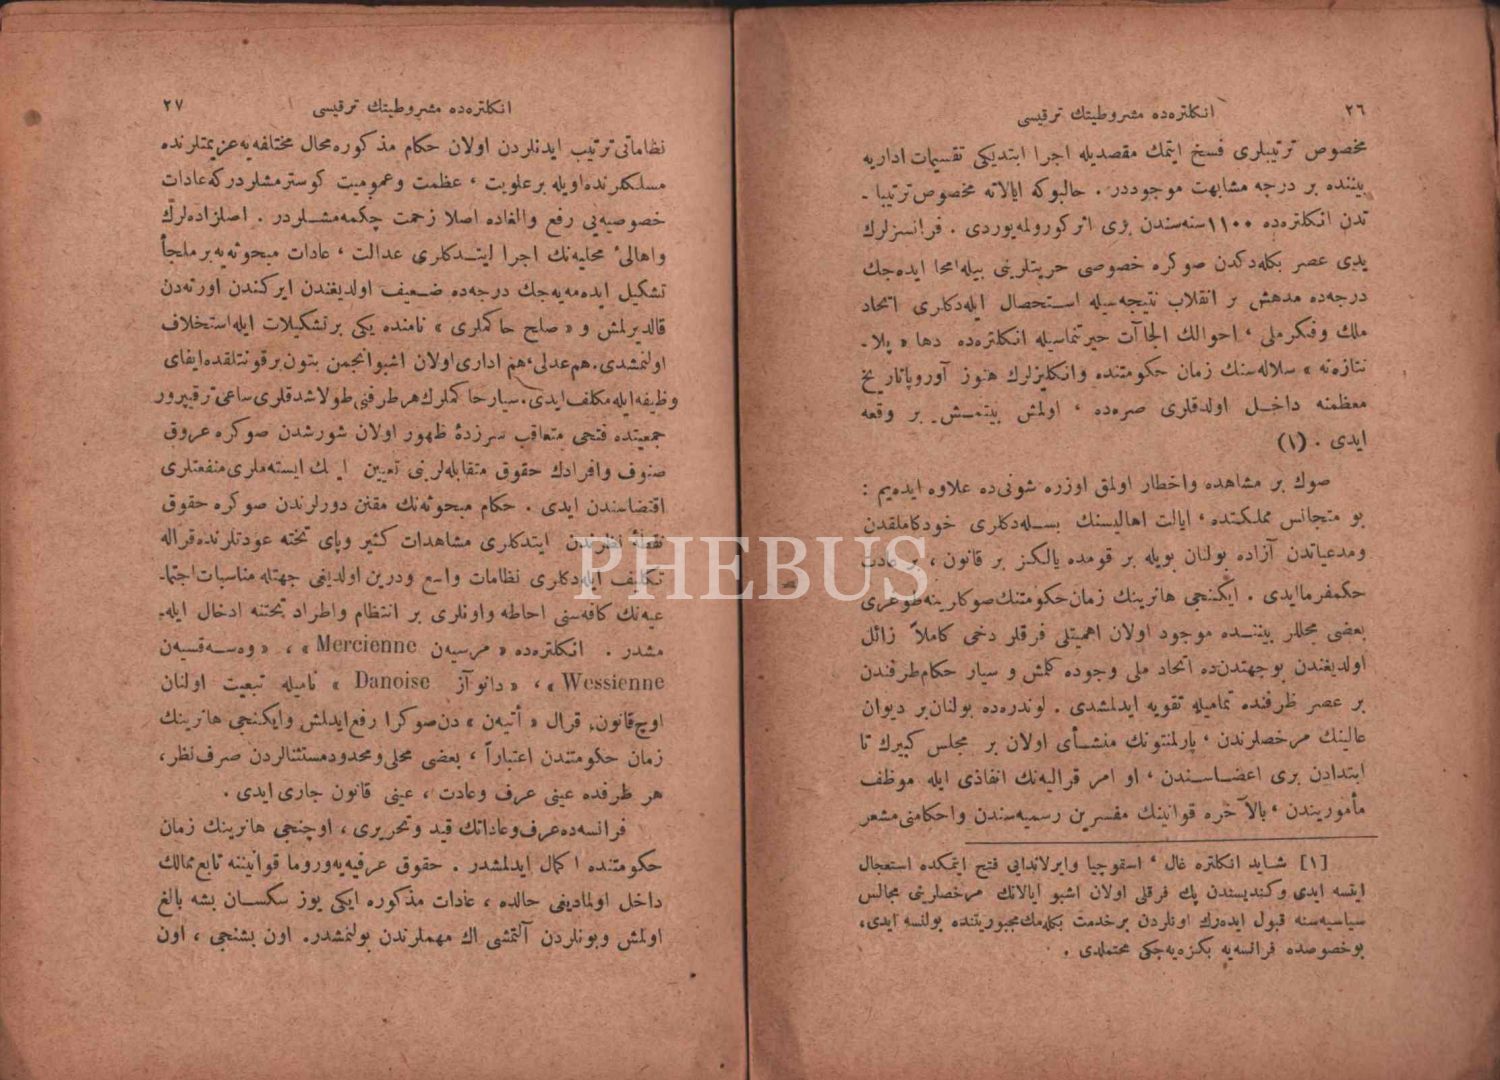 ٢٦ انكلتره‌ده مشروطيتك ترقيسى
مخصوص ترتيبلرى فسخ ايتمك مقصديله اجرا ابتديكى تقسيمات اداريه
بيننده بر درجه مشابهت موجوددر . حالبوكه ايالاته مخصوص ترتيبا ـ
تدن انكلتره‌ده ١١٠٠ سنه‌سندن برى اثر كورولمه‌يوردى . فرانسزلرك
يدى عصر بكله‌دكدن صوكره خصوصى حريتلرينى بيله امحا ايده‌جك
درجه‌ده مدهش بر انقلاب نتيجه‌سيله استحصال ايله‌دكلرى اتحاد
ملك وفكر ملى ، احوالك الجاآت حيرتنماسيله انكلتره‌ده دها « پلا ـ
نتاژه‌نه » سلاله‌سنك زمان حكومتنده وانكليزلرك هنوز آوروپا تاريخ
معظمنه داخل اولدقلرى صره‌ده ، اولمش بيتمش بر وقعه
ايدى . (١)
صوك بر مشاهده واخطار اولمق اوزره شونى‌ده علاوه ايده‌يم :
بو متجانس مملكتده ، ايالت اهاليسنك بسله‌دكلرى خودكاملقدن
ومدعياتدن آزاده بولنان بويله بر قومده يالكز بر قانون ، بر عادت
حكمفرما ايدى . ايكنجى هانرينك زمان حكومتنك صوكارينه طوغرى
بعضى محللر بيننده موجود اولان اهميتلى فرقلر دخى كاملاً زائل
اولديغندن بوجهتدن‌ده اتحاد ملى وجوده كلمش و سيار حكام طرفندن
بر عصر ظرفنده تماميله تقويه ايدلمشدى . لوندره‌ده بولنان بر ديوان
عالينك مرخصلرندن ، پارلمنتونك منشأى اولان بر مجلس كبيرك تا
ابتدادن برى اعضاسندن ، او امر قراليه‌نك انفاذى ايله موظف
مأموريندن ، بالآخره قوانينك مفسرين رسميه‌سندن واحكامنى مشعر
[١] شايد انكلتره غال ، اسقوچيا وايرلاندايى فتح ايتمكده استعجال
ايتسه ايدى وكنديسندن پك فرقلى اولان اشبو ايالاتك مرخصلرينى مجالس
سياسيه‌سنه قبول ايده‌رك اونلردن بر خدمت بكله‌مك مجبوريتنده بولنسه ايدى ،
بوخصوصده فرانسه‌يه بكزه‌يه‌جكى محتملدى .
انكلتره‌ده مشروطيتك ترقيسى ٢٧
نظاماتى ترتيب ايدنلردن اولان حكام مذكوره محال مختلفه‌يه عزيمتلرنده
مسلكلرنده اويله بر علويت ، عظمت وعموميت كوسترمشلردركه عادات
خصوصيه‌يى رفع والغاده اصلا زحمت چكمه‌مشلردر . اصلزاده‌لرك
واهالىٔ محليه‌نك اجرا ايتدكلرى عدالت ، عادات مبحوثه‌يه بر ملجأ
تشكيل ايده‌مه‌يه‌جك درجه‌ده ضعيف اولديغندن ايركندن اورته‌دن
قالديرلمش و « صلح حاكملرى » نامنده يكى بر تشكيلات ايله استخلاف
اولنمشدى. هم عدلى ، هم ادارى اولان اشبو انجمن بتون بر قونتلقده ايفاى
وظيفه ايله مكلف ايدى. سيار حاكملرك هر طرفنى طولاشدقلرى ساعى ترقيپرور
جمعيتده فتحى متعاقب سرزدهٔ ظهور اولان شورشدن صوكره عروق
صنوف وافرادك حقوق متقابله‌لرينى تعيين ايتمك ايسته‌ملرى منفعتلرى
اقتضاسندن ايدى . حكام مبحوثه‌نك مقنن دورلرندن صوكره حقوق
نقطهٔ نظرندن ايتدكلرى مشاهدات كثير وپاى تخته عودتلرنده قراله
تكليف ايله‌دكلرى نظامات واسع ودرين اولديغى جهتله مناسبات اجتما ـ
عيه‌نك كافه‌سنى احاطه واونلرى بر انتظام واطراد تحتنه ادخال ايله ـ
مشدر . انكلتره‌ده « مرسيه‌ن Mercienne » ، « وه‌سه‌قسيه‌ن
Wessienne » ، « دانوآز Danoise » ناميله تبعيت اولنان
اوچ قانون ، قرال « أتيه‌ن » دن صوكرا رفع ايدلمش وايكنجى هانرينك
زمان حكومتندن اعتباراً ، بعضى محلى ومحدود مستثنالردن صرف نظر ،
هر طرفده عينى عرف وعادت ، عينى قانون جارى ايدى .
فرانسه‌ده عرف وعاداتك قيد وتحريرى ، اوچنجى هانرينك زمان
حكومتنده اكمال ايدلمشدر . حقوق عرفيه‌يه وروما قوانيننه تابع ممالك
داخل اولماديغى حالده ، عادات مذكوره ايكى يوز سكسان بشه بالغ
اولمش وبونلردن آلتمشى اك مهملرندن بولنمشدر. اون بشنجى ، اون
PHEBUS